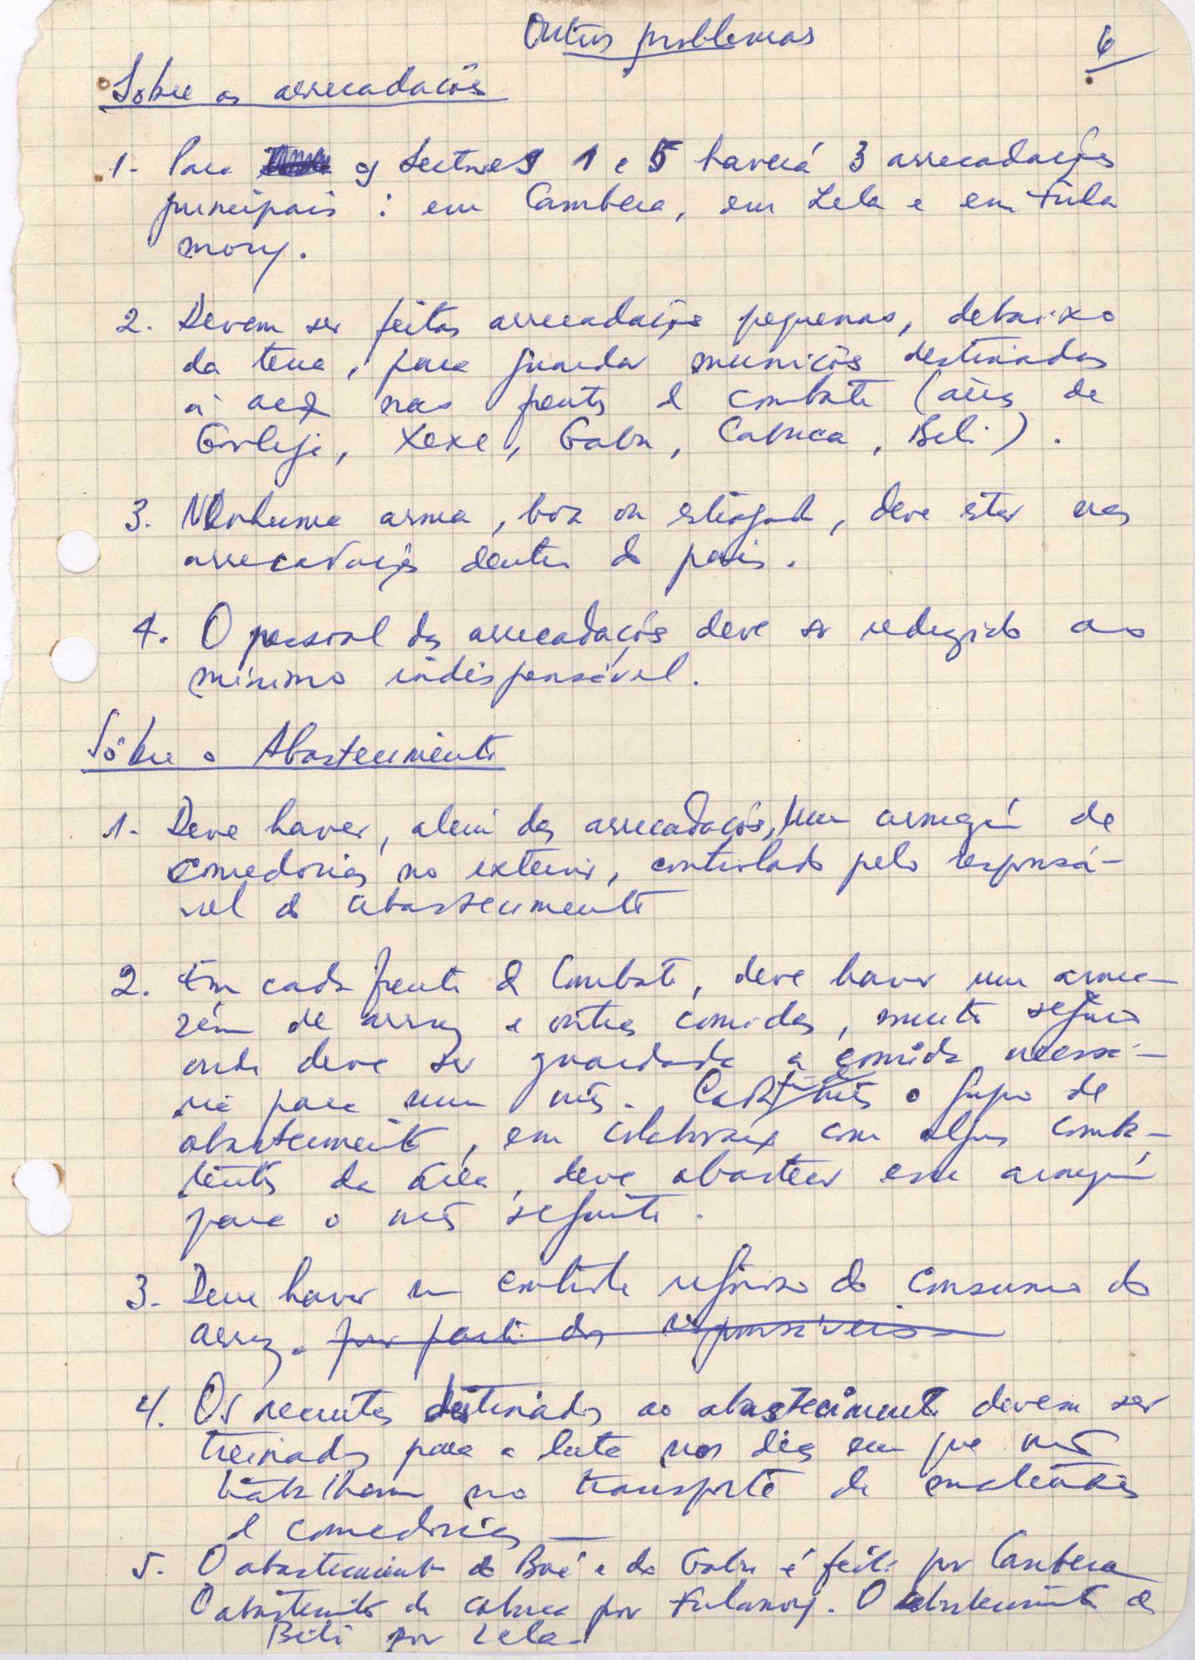 Outros problemas
6
Sôbre as arrecadações
1- Para os Sectores 1 e 5 haverá 3 arrecadações
principais : em Cambera, em Lela e em Fula
mory.
2. Devem ser feitas arrecadações pequenas, debaixo
da terra, para guardar munições destinadas
à acção nas frentes de combate (áreas de
Xexe, Gabu, Cabuca, Beli).
3. Nenhuma arma, boa ou estragada, deve estar nas
arrecadações dentro do país.
4. O pessoal das arrecadações deve ser reduzido ao
mínimo indispensável.
Sôbre o Abastecimento
1- Deve haver, além das arrecadações, um armazém de
comedorias no exterior, controlado pelo responsá-
vel do abastecimento
2. Em cada frente de Combate, deve haver um arma-
zém de arroz e outras comidas, muito seguro
onde deve ser guardada a comida necessá-
ria para um mês. Cada mês o grupo de
abastecimento, em colaboração com alguns comba-
tentes da área, deve abastecer esse armazém
para o mês seguinte.
3. Deve haver um contrôle rigoroso do consumo do
arroz. por parte dos responsáveis
4. Os recrutas destinados ao abastecimento devem ser
treinados para a luta nos dias em que não
trabalham no transporte de materiais
e comedorias
5. O abastecimento do Boé e do Gabu é feito por Cambera
O abastecimento de Cabuca por Fulamory. O abastecimento de
Beli por Lela-